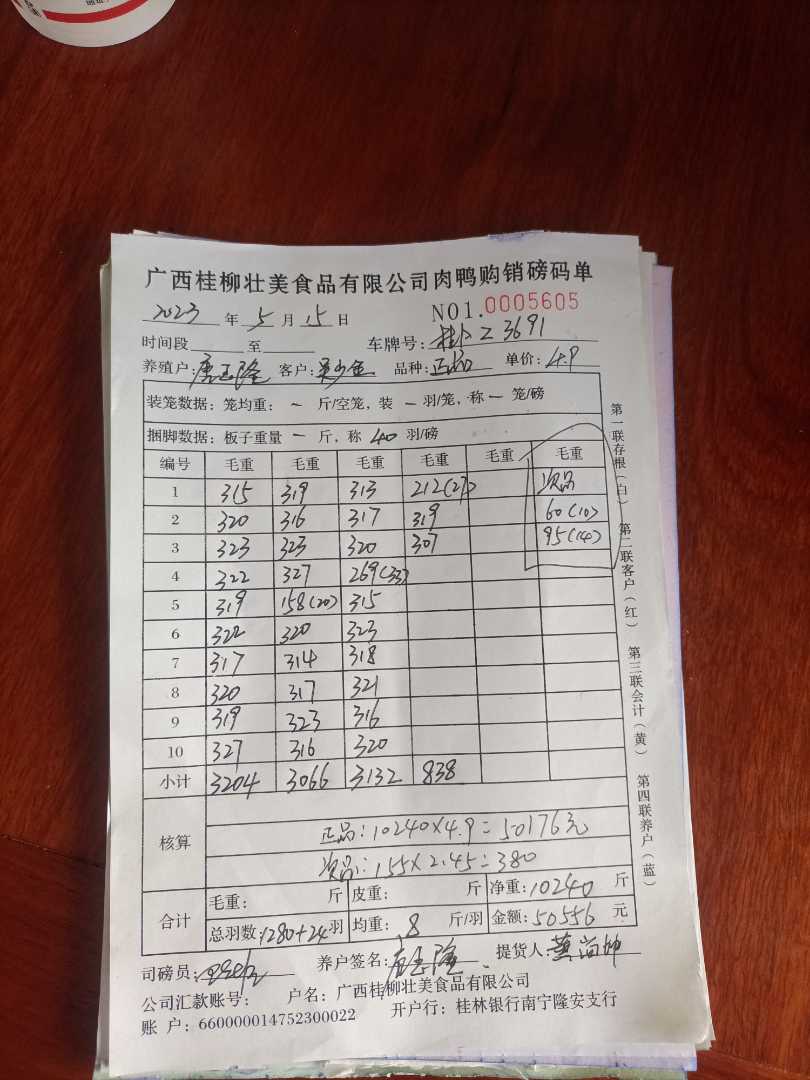 广西桂柳壮美食品有限公司肉鸭购销磅码单
2023 年 5 月 15 日 NO1.0005605
时间段 至 车牌号: Z3691
养殖户: 唐玉隆 客户: 品种: 正品 单价: 4.9
装笼数据: 笼均重: - 斤/空笼, 装 - 羽/笼, 称 - 笼/磅
捆脚数据: 板子重量 - 斤, 称 40 羽/磅
编号 毛重 毛重 毛重 毛重 毛重 毛重
1 315 319 313 212(27) 次品
2 320 316 317 319 60(10)
3 323 323 320 307 95(14)
4 322 327 269(33)
5 319 158(20) 315
6 322 320 323
7 317 314 318
8 320 317 321
9 319 323 316
10 327 316 320
小计 3204 3066 3132 838
核算
正品:10240×4.9=50176元
次品:155×2.45=380
合计
毛重: 斤 皮重: 斤 净重: 10240 斤
总羽数: 1280+24 羽 均重: 8 斤/羽 金额: 50556 元
司磅员: 养户签名: 唐玉隆 提货人:
公司汇款账号: 户名: 广西桂柳壮美食品有限公司
账 户: 660000014752300022 开户行: 桂林银行南宁隆安支行
第一联存根(白) 第二联客户(红) 第三联会计(黄) 第四联养户(蓝)